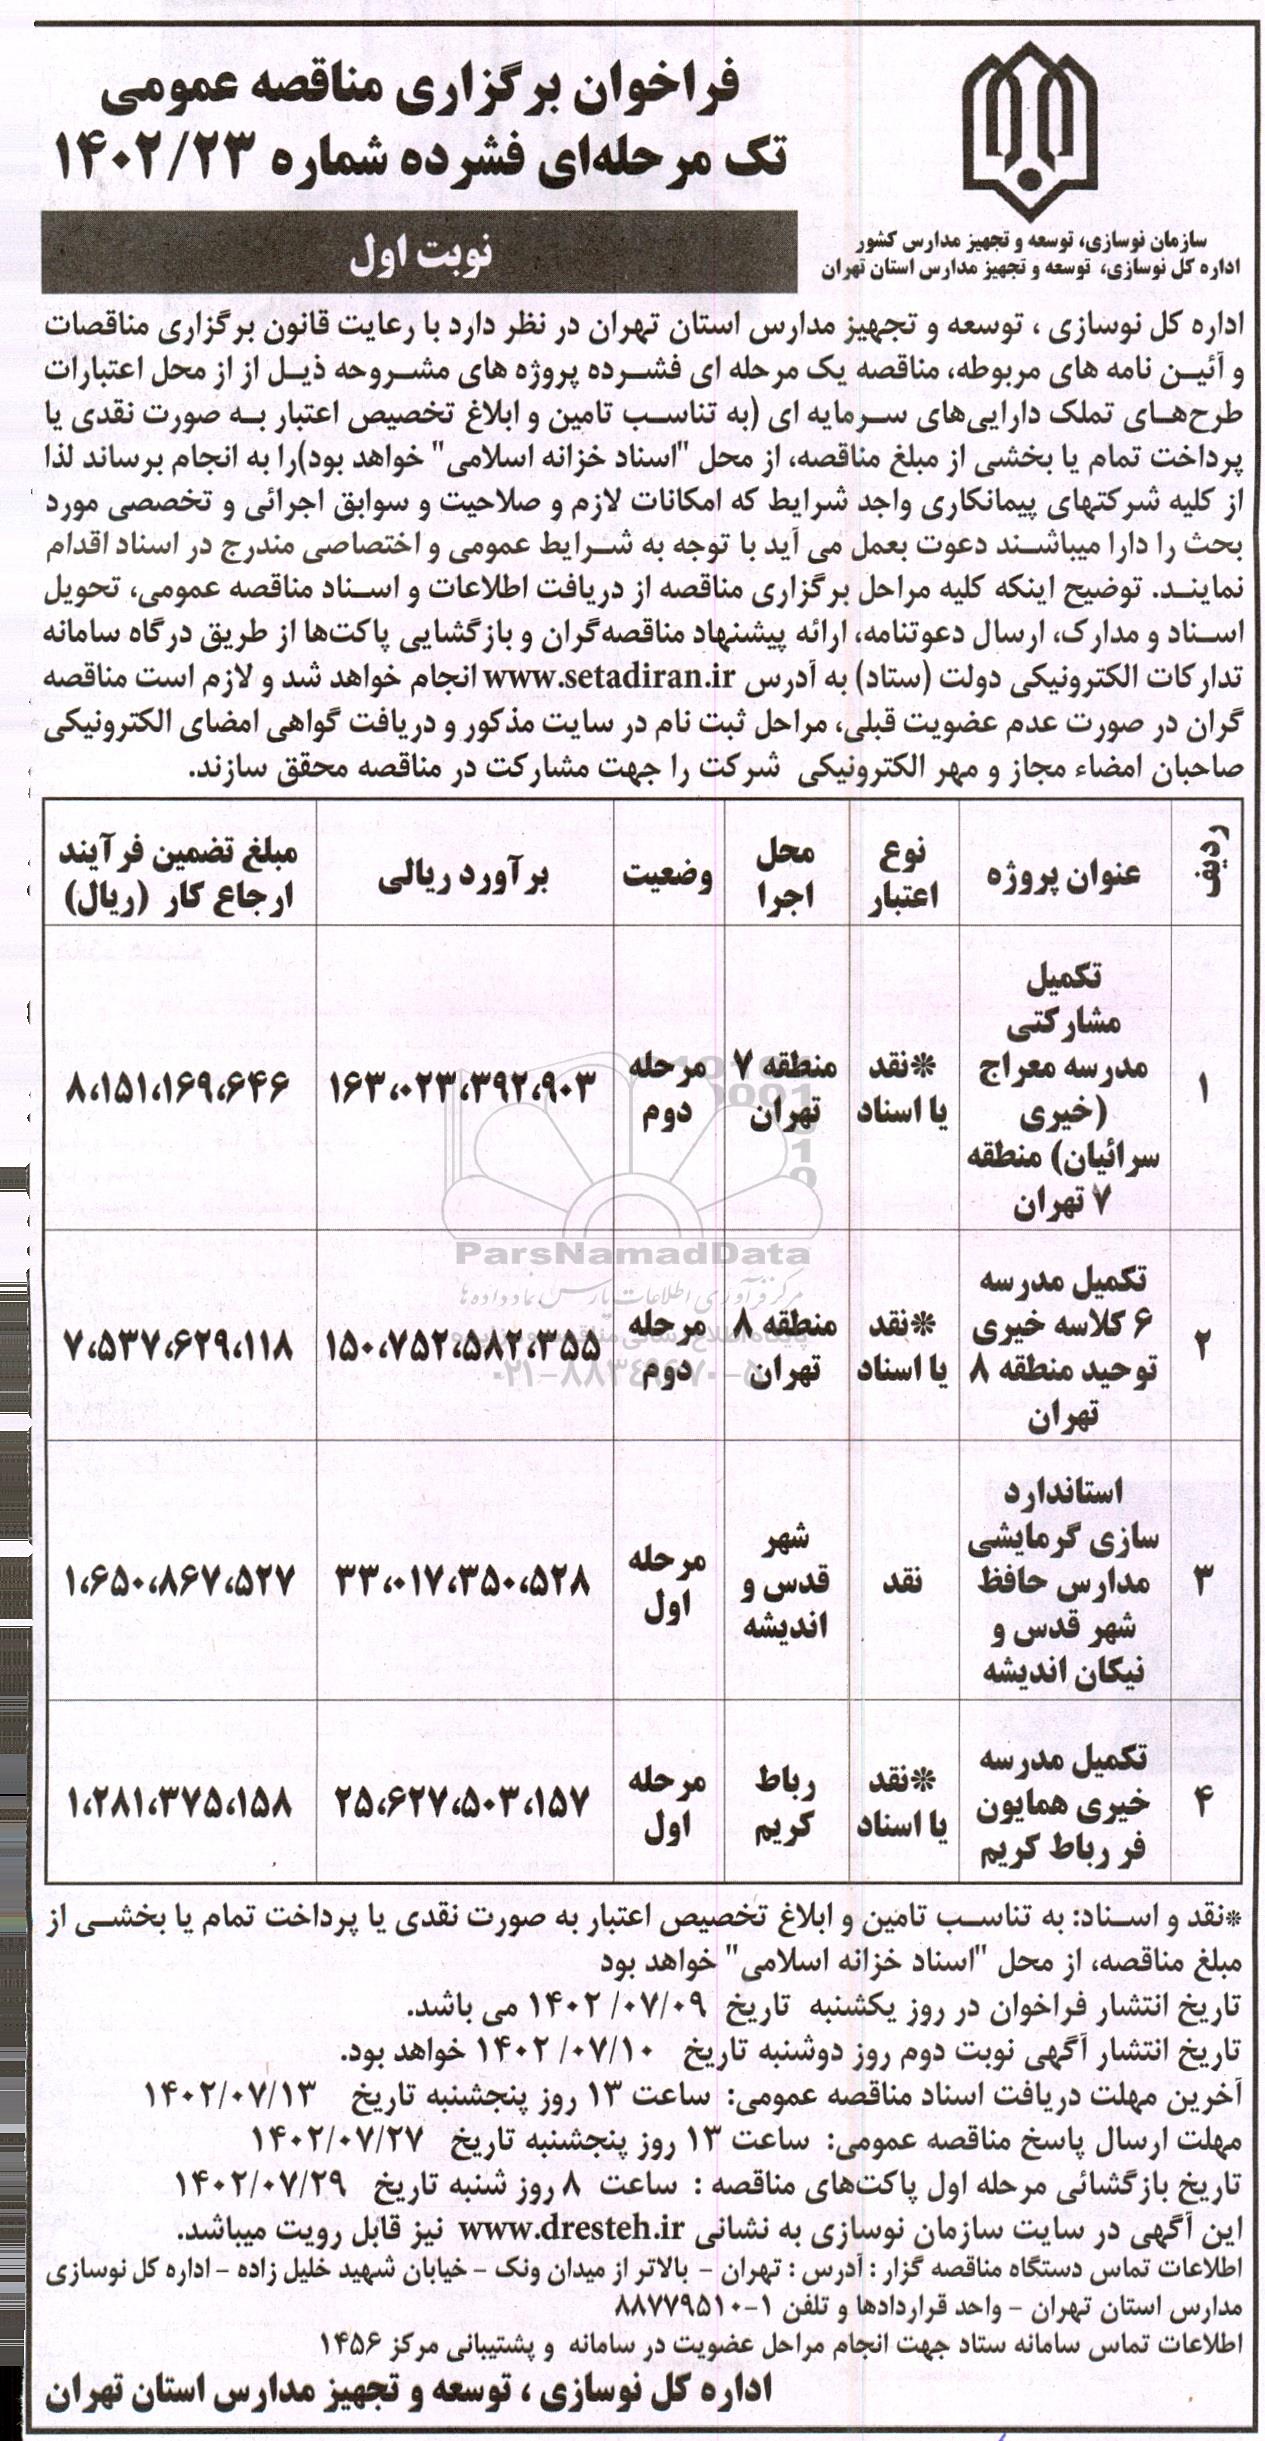 فراخوان برگزاری مناقصه عمومی
تک مرحله‌ای فشرده شماره ۱۴۰۲/۲۳
نوبت اول
سازمان نوسازی، توسعه و تجهیز مدارس کشور
اداره کل نوسازی، توسعه و تجهیز مدارس استان تهران
اداره کل نوسازی ، توسعه و تجهیز مدارس استان تهران در نظر دارد با رعایت قانون برگزاری مناقصات
و آئین نامه های مربوطه، مناقصه یک مرحله ای فشرده پروژه های مشروحه ذیل از از محل اعتبارات
طرح‌های تملک دارایی‌های سرمایه ای (به تناسب تامین و ابلاغ تخصیص اعتبار به صورت نقدی یا
پرداخت تمام یا بخشی از مبلغ مناقصه، از محل "اسناد خزانه اسلامی" خواهد بود)را به انجام برساند لذا
از کلیه شرکتهای پیمانکاری واجد شرایط که امکانات لازم و صلاحیت و سوابق اجرائی و تخصصی مورد
بحث را دارا میباشند دعوت بعمل می آید با توجه به شرایط عمومی و اختصاصی مندرج در اسناد اقدام
نمایند. توضیح اینکه کلیه مراحل برگزاری مناقصه از دریافت اطلاعات و اسناد مناقصه عمومی، تحویل
اسناد و مدارک، ارسال دعوتنامه، ارائه پیشنهاد مناقصه‌گران و بازگشایی پاکت‌ها از طریق درگاه سامانه
تدارکات الکترونیکی دولت (ستاد) به آدرس www.setadiran.ir انجام خواهد شد و لازم است مناقصه
گران در صورت عدم عضویت قبلی، مراحل ثبت نام در سایت مذکور و دریافت گواهی امضای الکترونیکی
صاحبان امضاء مجاز و مهر الکترونیکی شرکت را جهت مشارکت در مناقصه محقق سازند.
ردیف
عنوان پروژه
نوع
اعتبار
محل
اجرا
وضعیت
برآورد ریالی
مبلغ تضمین فرآیند
ارجاع کار (ریال)
۱
تکمیل
مشارکتی
مدرسه معراج
(خیری
سرائیان) منطقه
۷ تهران
*نقد
یا اسناد
منطقه ۷
تهران
مرحله
دوم
۱۶۳،۰۲۳،۳۹۲،۹۰۳
۸،۱۵۱،۱۶۹،۶۴۶
۲
تکمیل مدرسه
۶ کلاسه خیری
توحید منطقه ۸
تهران
*نقد
یا اسناد
منطقه ۸
تهران
مرحله
دوم
۱۵۰،۷۵۲،۵۸۲،۳۵۵
۷،۵۳۷،۶۲۹،۱۱۸
۳
استاندارد
سازی گرمایشی
مدارس حافظ
شهر قدس و
نیکان اندیشه
نقد
شهر
قدس و
اندیشه
مرحله
اول
۳۳،۰۱۷،۳۵۰،۵۲۸
۱،۶۵۰،۸۶۷،۵۲۷
۴
تکمیل مدرسه
خیری همایون
فر رباط کریم
*نقد
یا اسناد
رباط
کریم
مرحله
اول
۲۵،۶۲۷،۵۰۳،۱۵۷
۱،۲۸۱،۳۷۵،۱۵۸
ParsNamadData
مرکز فرآوری اطلاعات پارس نماد داده‌ها
۰۲۱-۸۸۳۴۹۶۷۰-۵
*نقد و اسناد: به تناسب تامین و ابلاغ تخصیص اعتبار به صورت نقدی یا پرداخت تمام یا بخشی از
مبلغ مناقصه، از محل "اسناد خزانه اسلامی" خواهد بود
تاریخ انتشار فراخوان در روز یکشنبه تاریخ ۱۴۰۲/۰۷/۰۹ می باشد.
تاریخ انتشار آگهی نوبت دوم روز دوشنبه تاریخ ۱۴۰۲/۰۷/۱۰ خواهد بود.
آخرین مهلت دریافت اسناد مناقصه عمومی: ساعت ۱۳ روز پنجشنبه تاریخ ۱۴۰۲/۰۷/۱۳
مهلت ارسال پاسخ مناقصه عمومی: ساعت ۱۳ روز پنجشنبه تاریخ ۱۴۰۲/۰۷/۲۷
تاریخ بازگشائی مرحله اول پاکت‌های مناقصه : ساعت ۸ روز شنبه تاریخ ۱۴۰۲/۰۷/۲۹
این آگهی در سایت سازمان نوسازی به نشانی www.dresteh.ir نیز قابل رویت میباشد.
اطلاعات تماس دستگاه مناقصه گزار : آدرس : تهران - بالاتر از میدان ونک - خیابان شهید خلیل زاده - اداره کل نوسازی
مدارس استان تهران - واحد قراردادها و تلفن ۱-۸۸۷۷۹۵۱۰
اطلاعات تماس سامانه ستاد جهت انجام مراحل عضویت در سامانه و پشتیبانی مرکز ۱۴۵۶
اداره کل نوسازی ، توسعه و تجهیز مدارس استان تهران